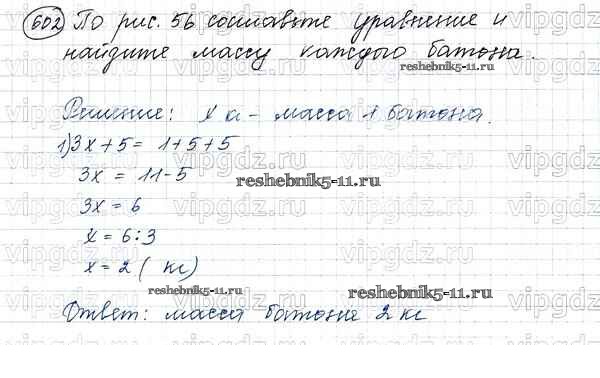 602 По рис. 56 составьте уравнение и
найдите массу каждого батона.
reshebnik5-11.ru
Решение: х кг - масса 1 батона.
1) 3х + 5 = 1 + 5 + 5
3х = 11 - 5
reshebnik5-11.ru
3х = 6
х = 6 : 3
х = 2 ( кг)
reshebnik5-11.ru
reshebnik5-11.ru
Ответ: масса батона 2 кг
vipgdz.ru vipgdz.ru vipgdz.ru